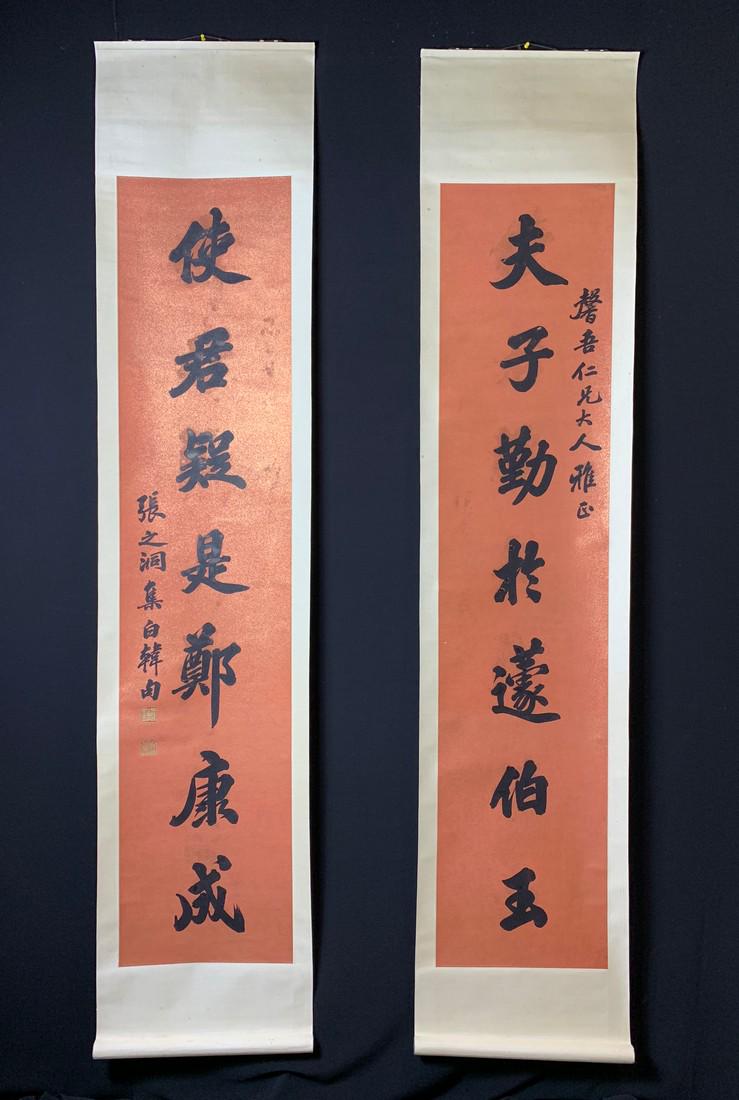 馨吾仁兄大人雅正
夫子勤於蘧伯玉
使君疑是鄭康成
張之洞集白韓句